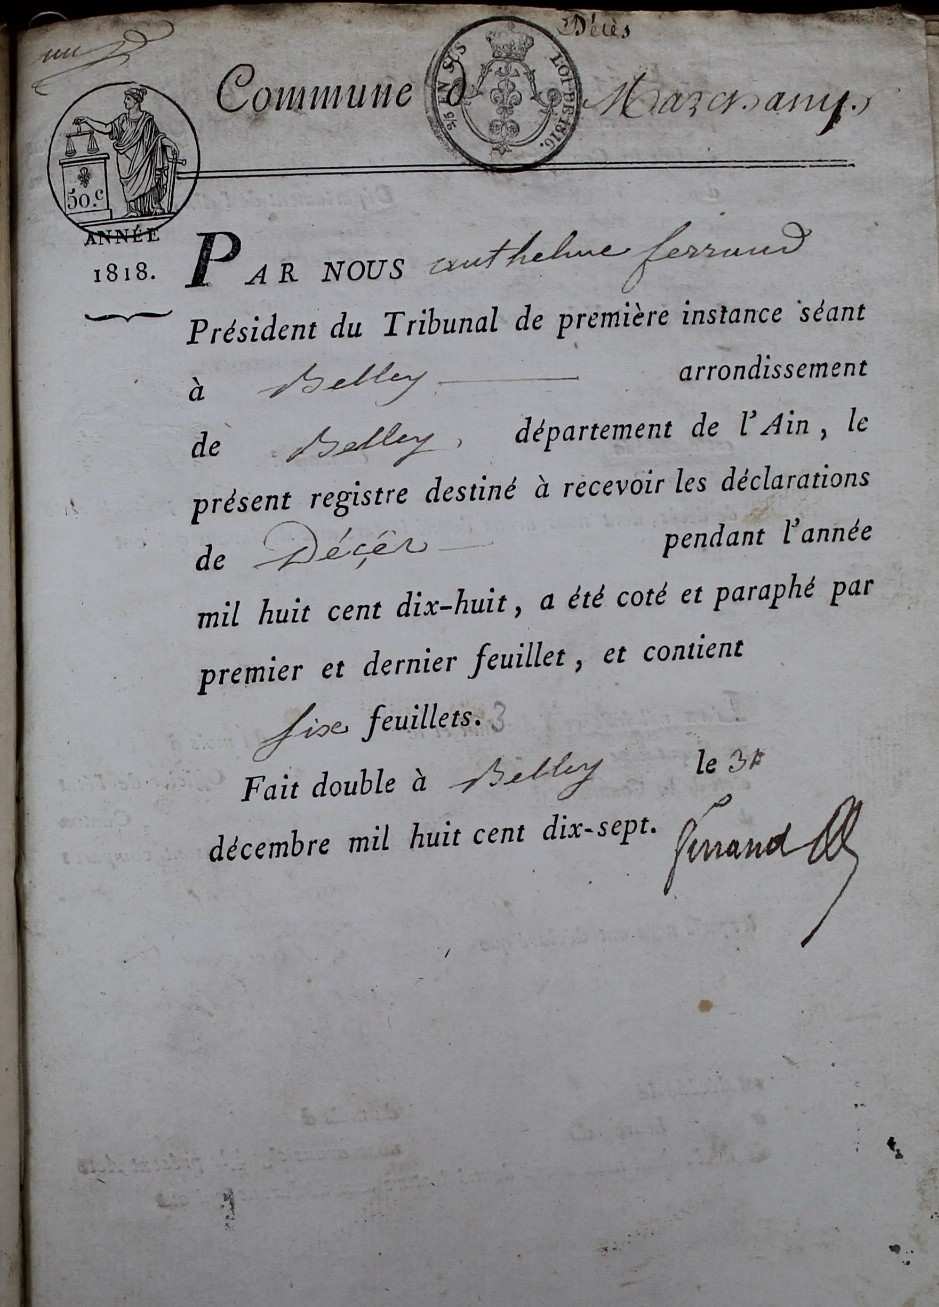 Décès
Commune d Marchamp
25 EN SUS LOI DE 1816.
50.c
ANNÉE
1818.
PAR NOUS anthelme ferrand
Président du Tribunal de première instance séant
à Belley arrondissement
de Belley, département de l'Ain, le
présent registre destiné à recevoir les déclarations
de Décès pendant l'année
mil huit cent dix-huit, a été coté et paraphé par
premier et dernier feuillet, et contient
six feuillets. 3
Fait double à Belley le
décembre mil huit cent dix-sept.
ferrand